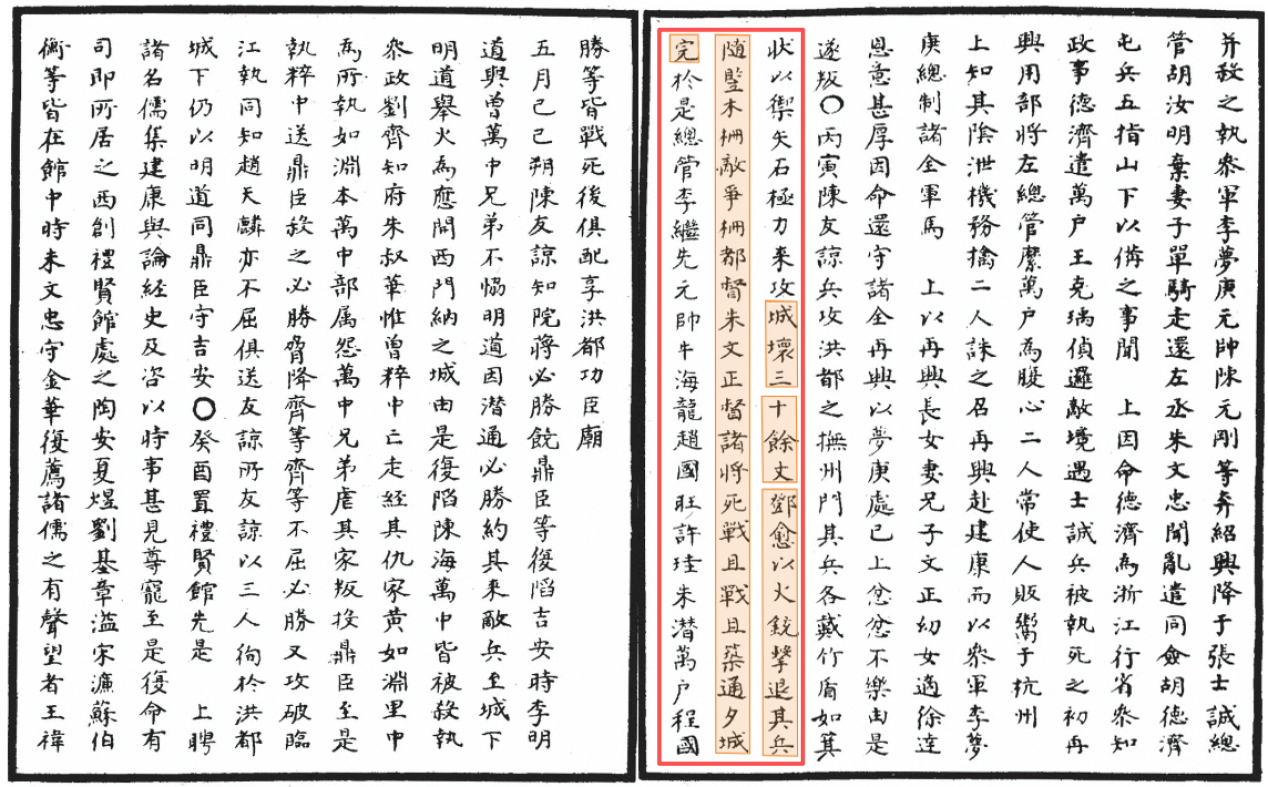 并殺之執叅軍李夢庚元帥陳元剛等奔紹興降于張士誠總
管胡汝明棄妻子單騎走還左丞朱文忠聞亂遣同僉胡德濟
屯兵五指山下以備之事聞　上因命德濟為浙江行省叅知
政事德濟遣萬户王克瑀偵邏敵境遇士誠兵被執死之初再
興用部將左總管縻萬户為腹心二人常使人販鬻于杭州
上知其陰泄機務擒二人誅之召再興赴建康而以叅軍李夢
庚總制諸全軍馬　上以再興長女妻兄子文正幼女適徐達
恩意甚厚因命還守諸全再興以夢庚處已上忿忿不樂由是
遂叛〇丙寅陳友諒兵攻洪都之撫州門其兵各戴竹盾如箕
狀以禦矢石極力来攻城壞三十餘丈鄧愈以火銃擊退其兵
随竪木柵敵爭柵都督朱文正督諸将死戰且戰且築通夕城
完於是總管李繼先元帥牛海龍趙國旺許珪朱潜萬户程國
勝等皆戰死後俱配享洪都功臣廟
五月己巳朔陳友諒知院蔣必勝饒鼎臣等復陷吉安時李明
道與曾萬中兄弟不恊明道因潜通必勝約其来敵兵至城下
明道舉火為應開西門納之城由是復陷陳海萬中皆被殺執
叅政劉齊知府朱叔華惟曾粹中亡走経其仇家黄如淵里中
為所執如淵本萬中部属怨萬中兄弟虐其家叛投鼎臣至是
執粹中送鼎臣殺之必勝脅降齊等齊等不屈必勝又攻破臨
江執同知趙天麟亦不屈俱送友諒所友諒以三人徇於洪都
城下仍以明道同鼎臣守吉安〇癸酉置禮賢館先是　上聘
諸名儒集建康與論経史及咨以時事甚見尊寵至是復命有
司即所居之西創禮賢館處之陶安夏煜劉基章溢宋濂蘇伯
衡等皆在館中時朱文忠守金華復薦諸儒之有聲望者王禕